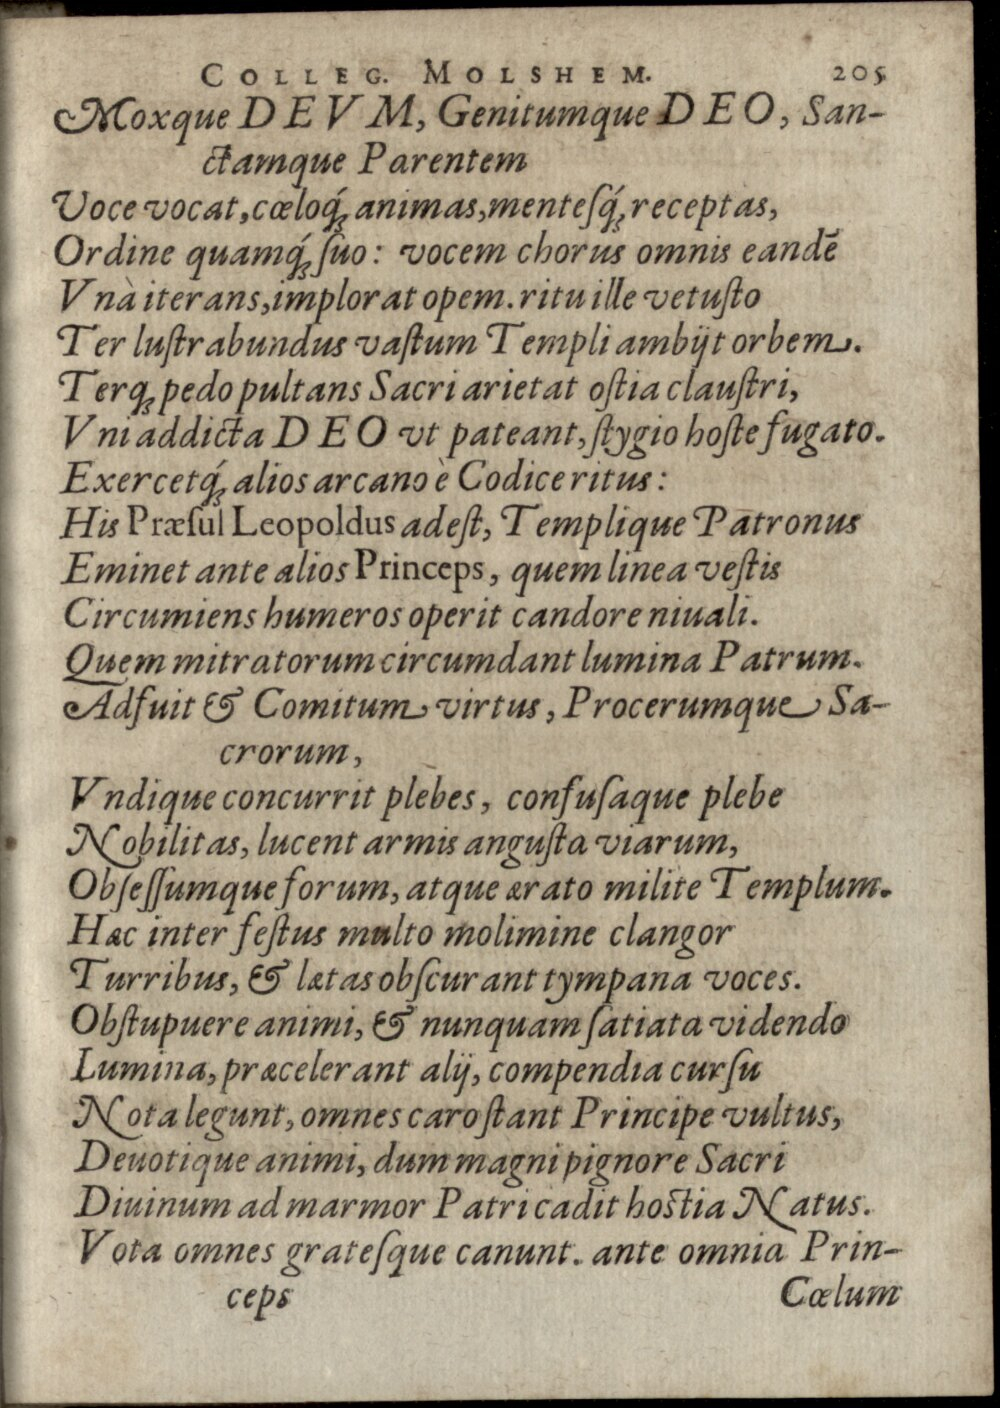 COLLEG. MOLSHEM. 205
Moxque DEVM, Genitumque DEO, San-
ctamque Parentem
Voce vocat, cœloq́; animas, menteſq́; receptas,
Ordine quamq́; ſuo: vocem chorus omnis eandē
Vnà iterans, implorat opem. ritu ille vetuſto
Ter luſtrabundus vaſtum Templi ambijt orbem.
Terq; pedo pultans Sacri arietat oſtia clauſtri,
Vni addicta DEO vt pateant, ſtygio hoſte fugato.
Exercetq́; alios arcano è Codice ritus:
His Præſul Leopoldus adeſt, Templique Patronus
Eminet ante alios Princeps, quem linea veſtis
Circumiens humeros operit candore niuali.
Quem mitratorum circumdant lumina Patrum.
Adfuit & Comitum virtus, Procerumque Sa-
crorum,
Vndique concurrit plebes, confuſaque plebe
Nobilitas, lucent armis anguſta viarum,
Obſeſſumque forum, atque ærato milite Templum.
Hæc inter feſtus multo molimine clangor
Turribus, & lætas obſcurant tympana voces.
Obſtupuere animi, & nunquam ſatiata videndo
Lumina, præcelerant alij, compendia curſu
Nota legunt, omnes caro ſtant Principe vultus,
Deuotique animi, dum magni pignore Sacri
Diuinum ad marmor Patri cadit hoſtia Natus.
Vota omnes grateſque canunt. ante omnia Prin-
ceps Cœlum